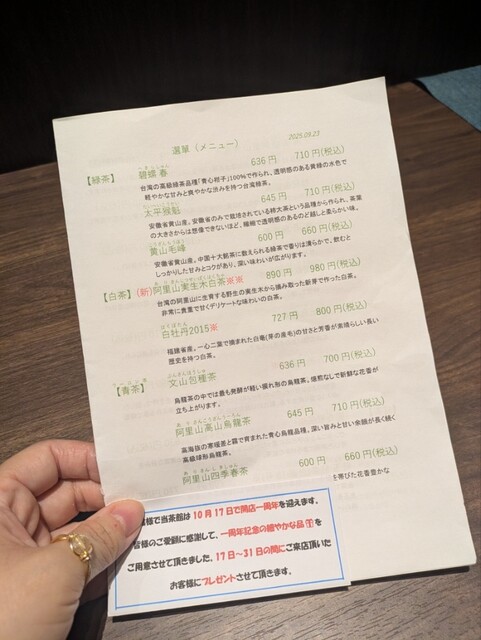 選單（メニュー）
2025.09.23
【緑茶】
碧螺春 636 円 710 円(税込)
台湾の高級緑茶品種「青心柑子」100％で作られ、透明感のある黄緑の水色で
軽やかな甘みと爽やかな渋みを持つ台湾緑茶。
太平猴魁 645 円 710 円(税込)
安徽省黄山産。安徽省のみで栽培されている柿大茶という品種から作られ、茶葉
の大きさからは想像できないほど、繊細で透明感のあるのど越しと柔らかい味。
黄山毛峰 600 円 660 円(税込)
安徽省黄山産。中国十大銘茶に数えられる緑茶で香りは清らかで、飲むと
しっかりした甘みとコクがあり、深い味わいが広がります。
【白茶】(新)阿里山実生木白茶※※ 890 円 980 円(税込)
台湾の阿里山に生育する野生の実生木から摘み取った新芽で作った白茶。
非常に貴重で甘くデリケートな味わいの白茶。
白牡丹2015※ 727 円 800 円(税込)
福建省産。一心二葉で摘まれた白毫(芽の産毛)の甘さと芳香が素晴らしい長い
歴史を持つ白茶。
【青茶】
文山包種茶 636 円 700 円(税込)
烏龍茶の中では最も発酵が軽い振れ形の烏龍茶。焙煎なしで新鮮な花香が
立ち上がります。
阿里山高山烏龍茶 645 円 710 円(税込)
高海抜の寒暖差と霧で育まれた青心烏龍品種。深い旨みと甘い余韻が長く続く
高級球形烏龍茶。
阿里山四季春茶 600 円 660 円(税込)
を帯びた花香豊かな
様で当茶館は 10 月 17 日で開店一周年を迎えます。
皆様のご愛顧に感謝して、一周年記念の細やかな品🎁を
ご用意させて頂きました。17 日～31 日の間にご来店頂いた
お客様にプレゼントさせて頂きます。